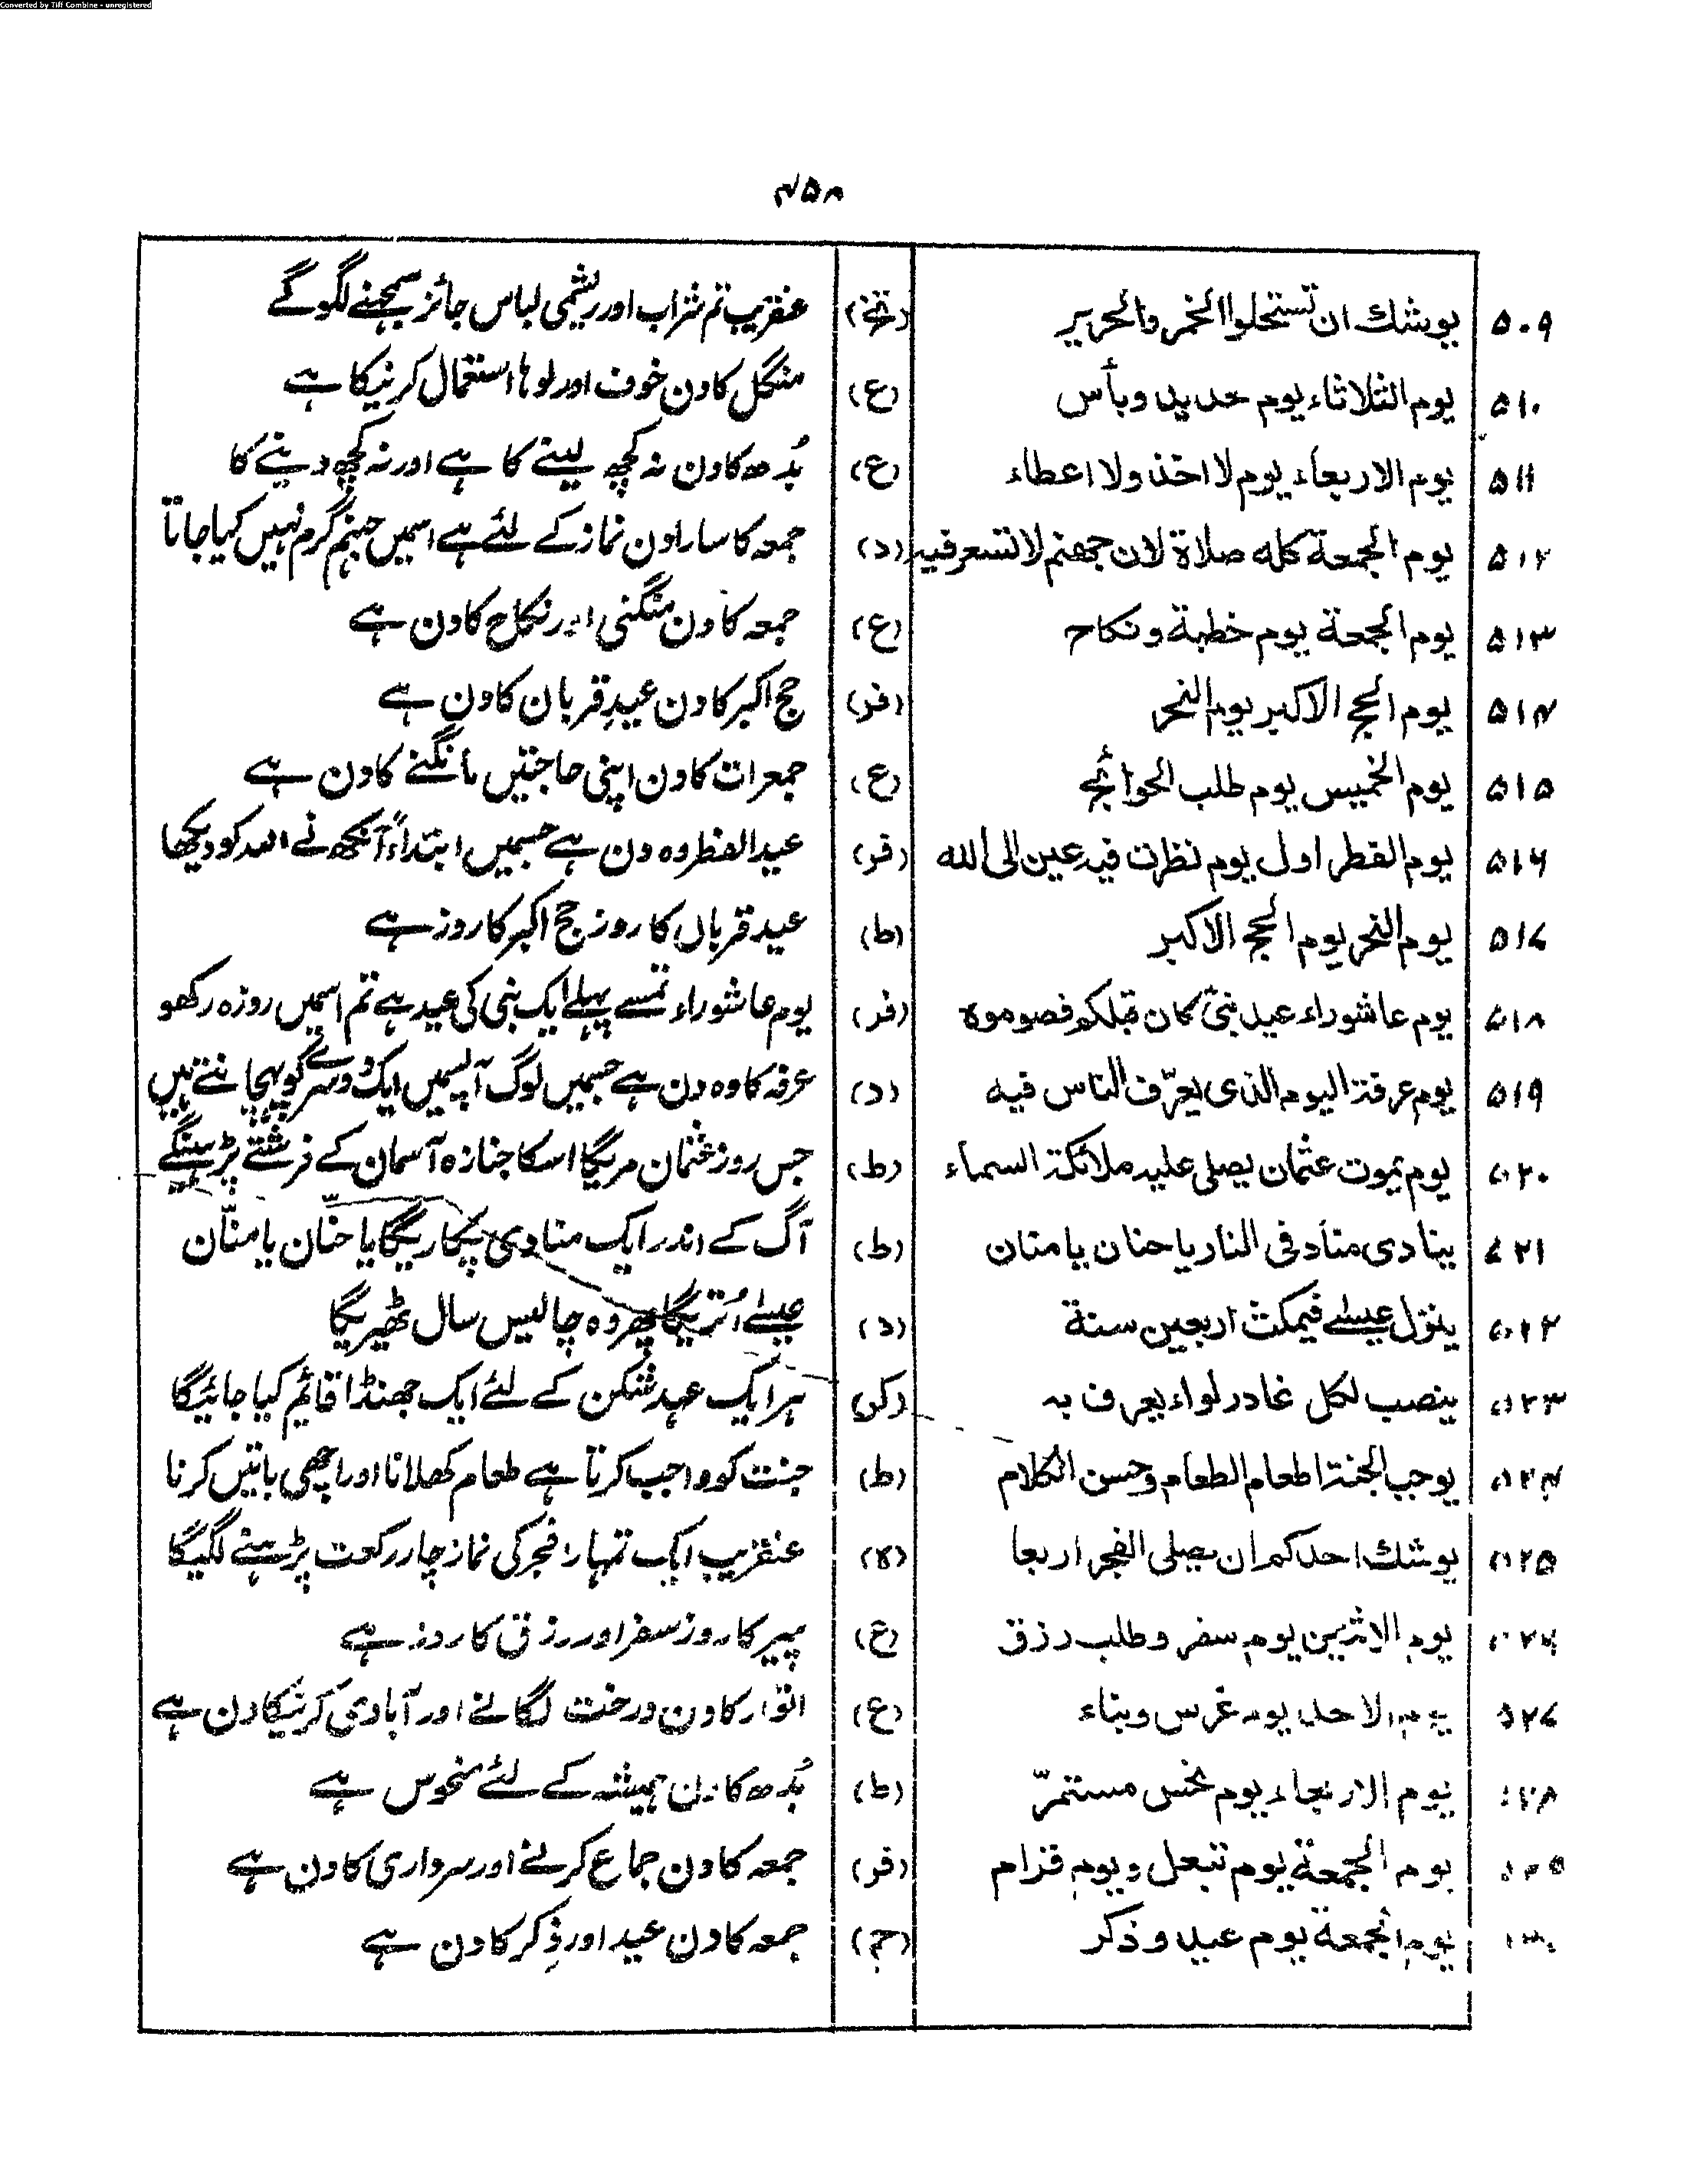 Converted by Tiff Combine - unregistered
۴۵۸
۵۰۹ یوشك ان تستحلوا الخمر والحریر (تخ) عنقریب تم شراب اور ریشمی لباس جائز سمجھنے لگوگے
۵۱۰ یوم الثلاثاء یوم حدید وبأس (ع) منگل کا دن خوف اور لوہا استعمال کرنیکا ہے
۵۱۱ یوم الاربعاء یوم لا اخذ ولا اعطاء (ع) بُدھ کا دن نہ کچھ لینے کا ہے اور نہ کچھ دینے کا
۵۱۲ یوم الجمعة کله صلاة لان جهنم لا تسعر فیه (د) جمعہ کا سارا دن نماز کے لئے ہے اسمیں جہنم گرم نہیں کیا جاتا
۵۱۳ یوم الجمعة یوم خطبة و نکاح (ع) جمعہ کا دن منگنی اور نکاح کا دن ہے
۵۱۴ یوم الحج الاکبر یوم النحر (فر) حج اکبر کا دن عیدِ قربان کا دن ہے
۵۱۵ یوم الخمیس یوم طلب الحوائج (ع) جمعرات کا دن اپنی حاجتیں مانگنے کا دن ہے
۵۱۶ یوم الفطر اول یوم نظرت فیه عین الی الله (فر) عید الفطر وہ دن ہے جسمیں ابتداءً آنکھ نے اللہ کو دیکھا
۵۱۷ یوم النحر یوم الحج الاکبر (ط) عید قربان کا روز حج اکبر کا روز ہے
۵۱۸ یوم عاشوراء عید نبیّ کان قبلکم فصوموه (فر) یوم عاشوراء تمسے پہلے ایک نبی کی عید ہے تم اسمیں روزہ رکھو
۵۱۹ یوم عرفة الیوم الذی یعرّف الناس فیه (د) عرفہ کا وہ دن ہے جسمیں لوگ آپسمیں ایک دوسرے کو پہچانتے ہیں
۵۲۰ یوم یموت عثمان یصلی علیه ملائکة السماء (ط) جس روز عثمان مریگا اسکا جنازہ آسمان کے فرشتے پڑہینگے
۵۲۱ ینادی مناد فی النار یا حنان یا منان (ط) آگ کے اندر ایک منادی پکاریگا یا حنّان یا منّان
۵۲۲ ینزل عیسٰے فیمکث اربعین سنة (د) عیسٰے اُتریگا پھر وہ چالیس سال ٹھیریگا
۵۲۳ ینصب لکل غادر لواء یعرف به (کر) ہر ایک عہد شکن کے لئے ایک جھنڈا قائم کیا جائیگا
۵۲۴ یوجب الجنة اطعام الطعام وحسن الکلام (ط) جنت کو واجب کرتا ہے طعام کھلانا اور اچھی باتیں کرنا
۵۲۵ یوشك احدکم ان یصلی الفجر اربعا (ہ) عنقریب ایک تمہارا فجر کی نماز چار رکعت پڑہنے لگیگا
۵۲۶ یوم الاثنین یوم سفر وطلب رزق (ع) پیر کا روز سفر اور رزق کا روز ہے
۵۲۷ یوم الاحد یوم غرس وبناء (ع) اتوار کا دن درخت لگانے اور آبادی کرنیکا دن ہے
۵۲۸ یوم الاربعاء یوم نحس مستمرّ (ط) بُدھ کا دن ہمیشہ کے لئے منحوس ہے
یوم الجمعة یوم تبعل ویوم قزام (فر) جمعہ کا دن جماع کرنے اور سرداری کا دن ہے
یوم الجمعة یوم عید وذکر (حم) جمعہ کا دن عید اور ذِکر کا دن ہے